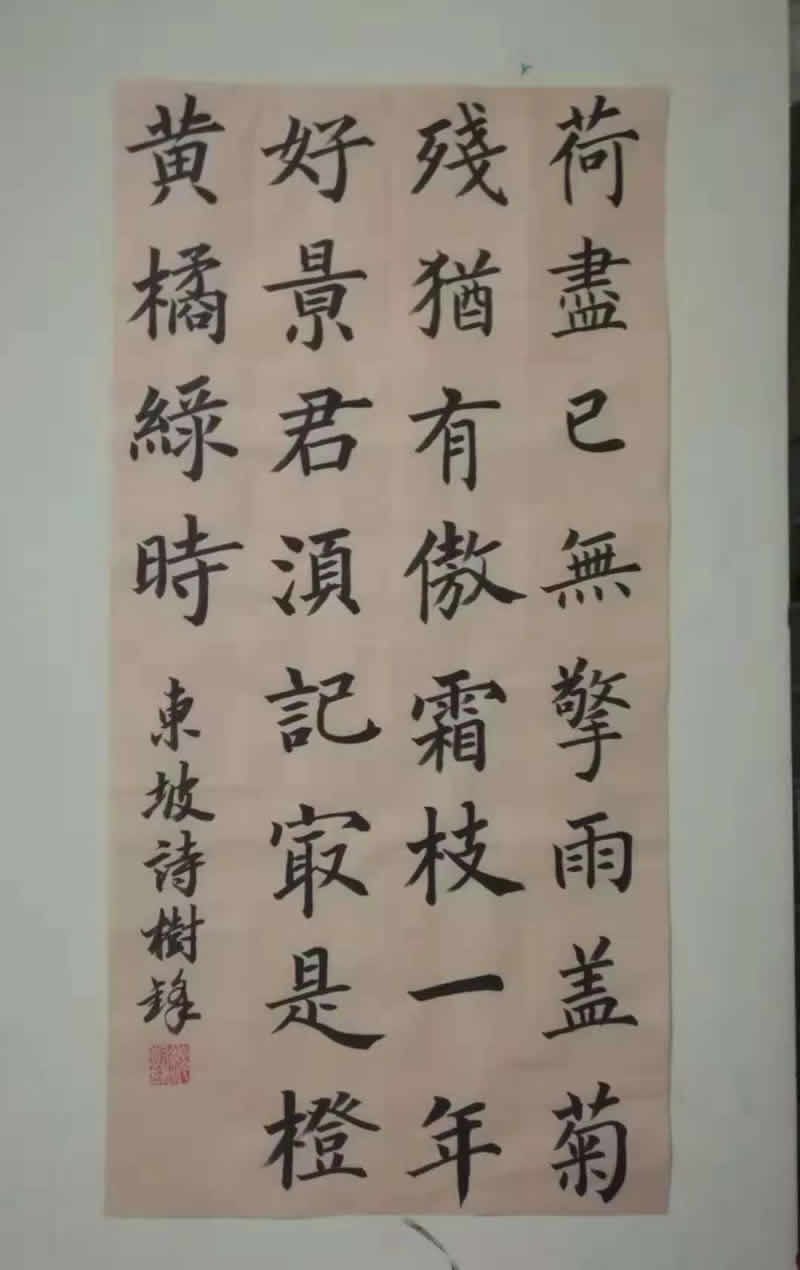 荷盡已無擎雨盖菊
殘猶有傲霜枝一年
好景君湏記冣是橙
黄橘緑時
東坡詩樹鋒